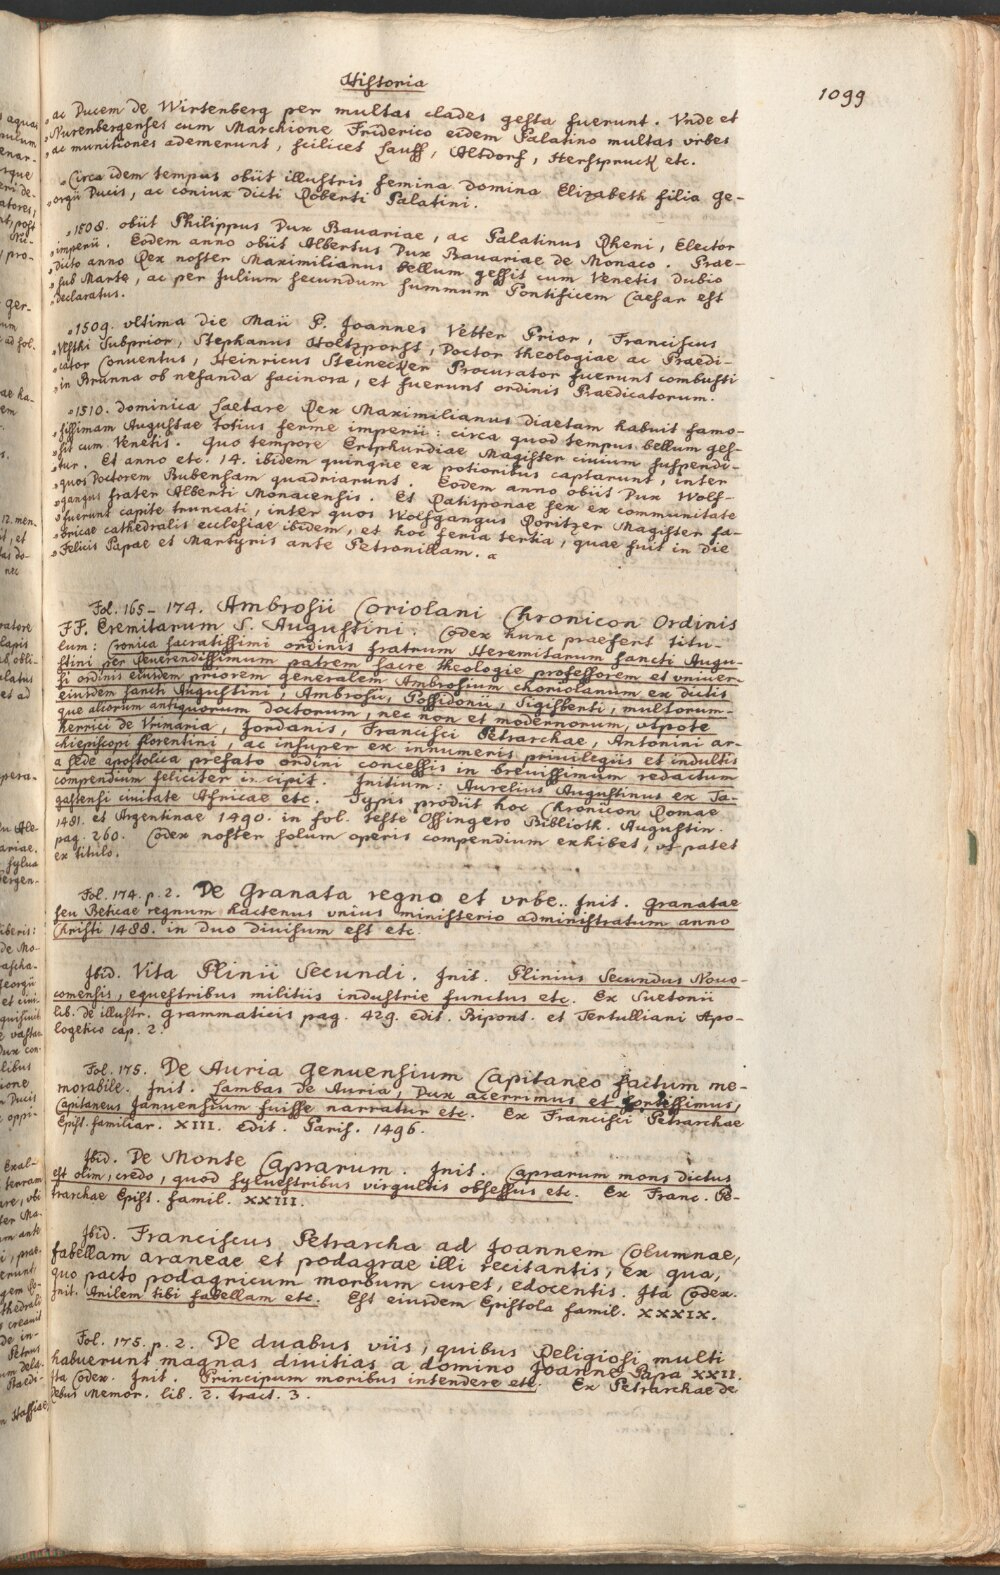 Historia
1099
„ac Ducem de Wirtenberg per multas clades gesta fuerunt. Vnde et
„Nurenbergenses cum Marchione Friderico eidem Palatino multas vrbes
„ac munitiones ademerunt, scilicet Lauff, Altdorf, Herspruck etc.
„Circa idem tempus obiit illustris femina domina Elizabeth filia Ge-
„orgii Ducis, ac coniux dicti Roberti Palatini.
„1508. obiit Philippus Dux Bauariae, ac Palatinus Rheni, Elector
„imperii. Eodem anno obiit Albertus Dux Bauariae de Monaco. Prae-
„dicto anno Rex noster Maximilianus bellum gessit cum Venetis dubio
„sub Marte, ac per Julium secundum summum Pontificem Caesar est
„declaratus.
„1509. vltima die Maii P. Joannes Vetter Prior, Franciscus
„Vlsthi Subprior, Stephanus Holtzporst, Doctor theologiae ac Praedi-
„cator Conuentus, Heinricus Steinecker Procurator fuerunt combusti
„in Brunna ob nefanda facinora, et fuerunt ordinis Praedicatorum.
„1510. Dominica Laetare Rex Maximilianus diaetam habuit famo-
„sissimam Augustae totius ferme imperii: circa quod tempus bellum ges-
„sit cum Venetis. Quo tempore Ertphurdiae Magister ciuium suspendi-
„tur. Et anno etc. 14. ibidem quinque ex potioribus captarunt, inter
„quos Doctorem Bubensam quadriarunt. Eodem anno obiit Dux Wolf-
„gangus frater Alberti Monacensis. Et Ratisponae sex ex communitate
„fuerunt capite truncati, inter quos Wolfgangus Roritzer Magister fa-
„bricae cathedralis ecclesiae ibidem, et hoc feria tertia, quae fuit in die
„Felicis Papae et Martyris ante Petronillam. „
Fol. 165-174. Ambrosii Coriolani Chronicon Ordinis
FF. Eremitarum S. Augustini. Codex hunc praefert titu-
lum: Cronica sacratissimi ordinis fratrum Heremitarum sancti Augu-
stini per Reuerendissimum patrem sacre theologie professorem et vniuer-
si ordinis eiusdem priorem generalem Ambrosium choriolanum ex dictis
eiusdem sancti Augustini, Ambrosii, Possidonii, Sigisberti, multorum-
que aliorum antiquorum doctorum, nec non et modernorum, vtpote
herrici de Vrimaria, Jordanis, Francisci Petrarchae, Antonini ar-
chiepiscopi florentini, ac insuper ex innumeris priuilegiis et indultis
a sede apostolica prefato ordini concessis in breuissimum redactum
compendium feliciter incipit. Initium: Aurelius Augustinus ex Ta-
gastensi ciuitate Africae etc. Typis prodiit hoc Chronicon Romae
1481. et Argentinae 1490. in fol. teste Ossingero Biblioth. Augustin.
pag. 260. Codex noster solum operis compendium exhibet, vt patet
ex titulo.
Fol. 174. p. 2. De Granata regno et vrbe. Init. Granatae
seu Beticae regnum hactenus vnius ministerio administratum anno
Christi 1488. in duo diuisum est etc.
Ibid. Vita Plinii Secundi. Init. Plinius Secundus Nouo-
comensis, equestribus militiis industrie functus etc. Ex Suetonii
lib. de illustr. Grammaticis pag. 429. edit. Bipont. et Tertulliani Apo-
logetico cap. 2.
Fol. 175. De Auria Genuensium Capitaneo factum me-
morabile. Init. Lambas de Auria, Dux acerrimus et fortissimus,
Capitaneus Januensium fuisse narratur etc. Ex Francisci Petrarchae
Epist. familiar. XIII. Edit. Paris. 1496.
Ibid. De Monte Caprarum. Init. Caprarum mons dictus
est olim, credo, quod syluestribus virgultis obsessus etc. Ex Franc. Pe-
trarchae Epist. famil. XXIII.
Ibid. Franciscus Petrarcha ad Joannem Columnae,
fabellam araneae et podagrae illi recitantis, ex qua,
quo pacto podagricum morbum curet, edocentis. Ita Codex.
Init. Anilem tibi fabellam etc. Est eiusdem Epistola famil. XXXIX.
Fol. 175. p. 2. De duabus viis, quibus Religiosi multi
habuerunt magnas diuitias a domino Joanne Papa XXII.
Ita Codex. Init. Principum moribus intendere etc. Ex Petrarchae de
Rebus Memor. lib. 2. tract. 3.